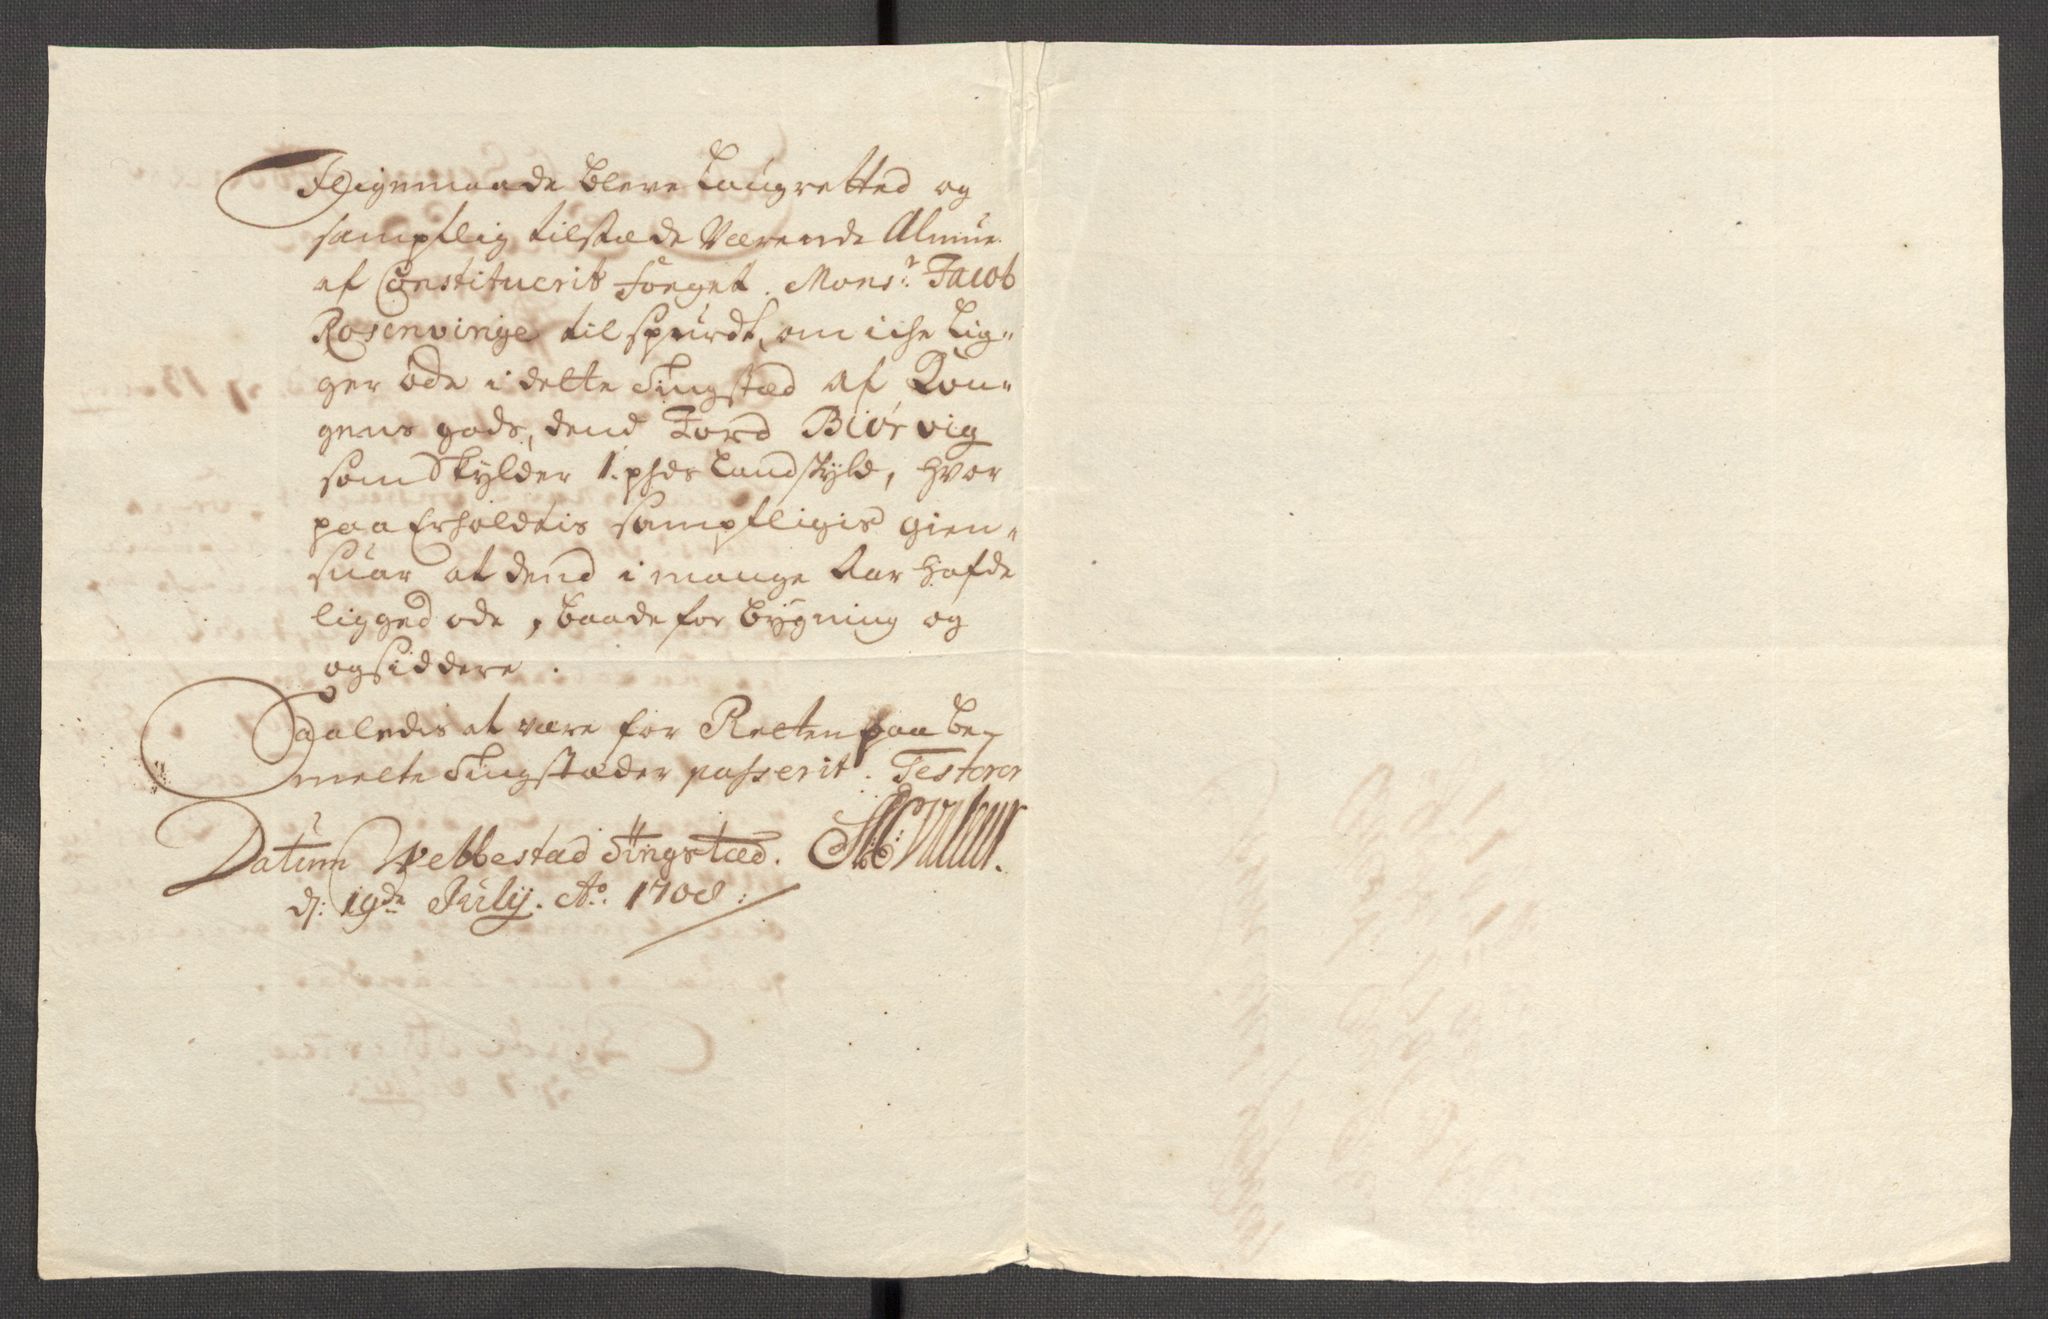 I Ligemaade bleve Laugretted og
samptlig tilstæde Værende Almue
af Constituerit fouget. Monsr. Jacob
Rosenvinge til spurdt, om iche Lig-
ger öde i dette Tingstæd af Kon-
gens gods, dend Jord Biörvig
som Skylder 1. phds Landskyld, hvor
paa Erholdtis samptligis gien-
suar at dend i mange Aar hafde
ligged öde, baade for bygning og
opsiddere.
Saaledis at være for Retten paa be-
melte Tingstæder passerit. Testorer
Datum Vebbestad Tingstæd.
dj: 19de Julij. Ao. 1708.